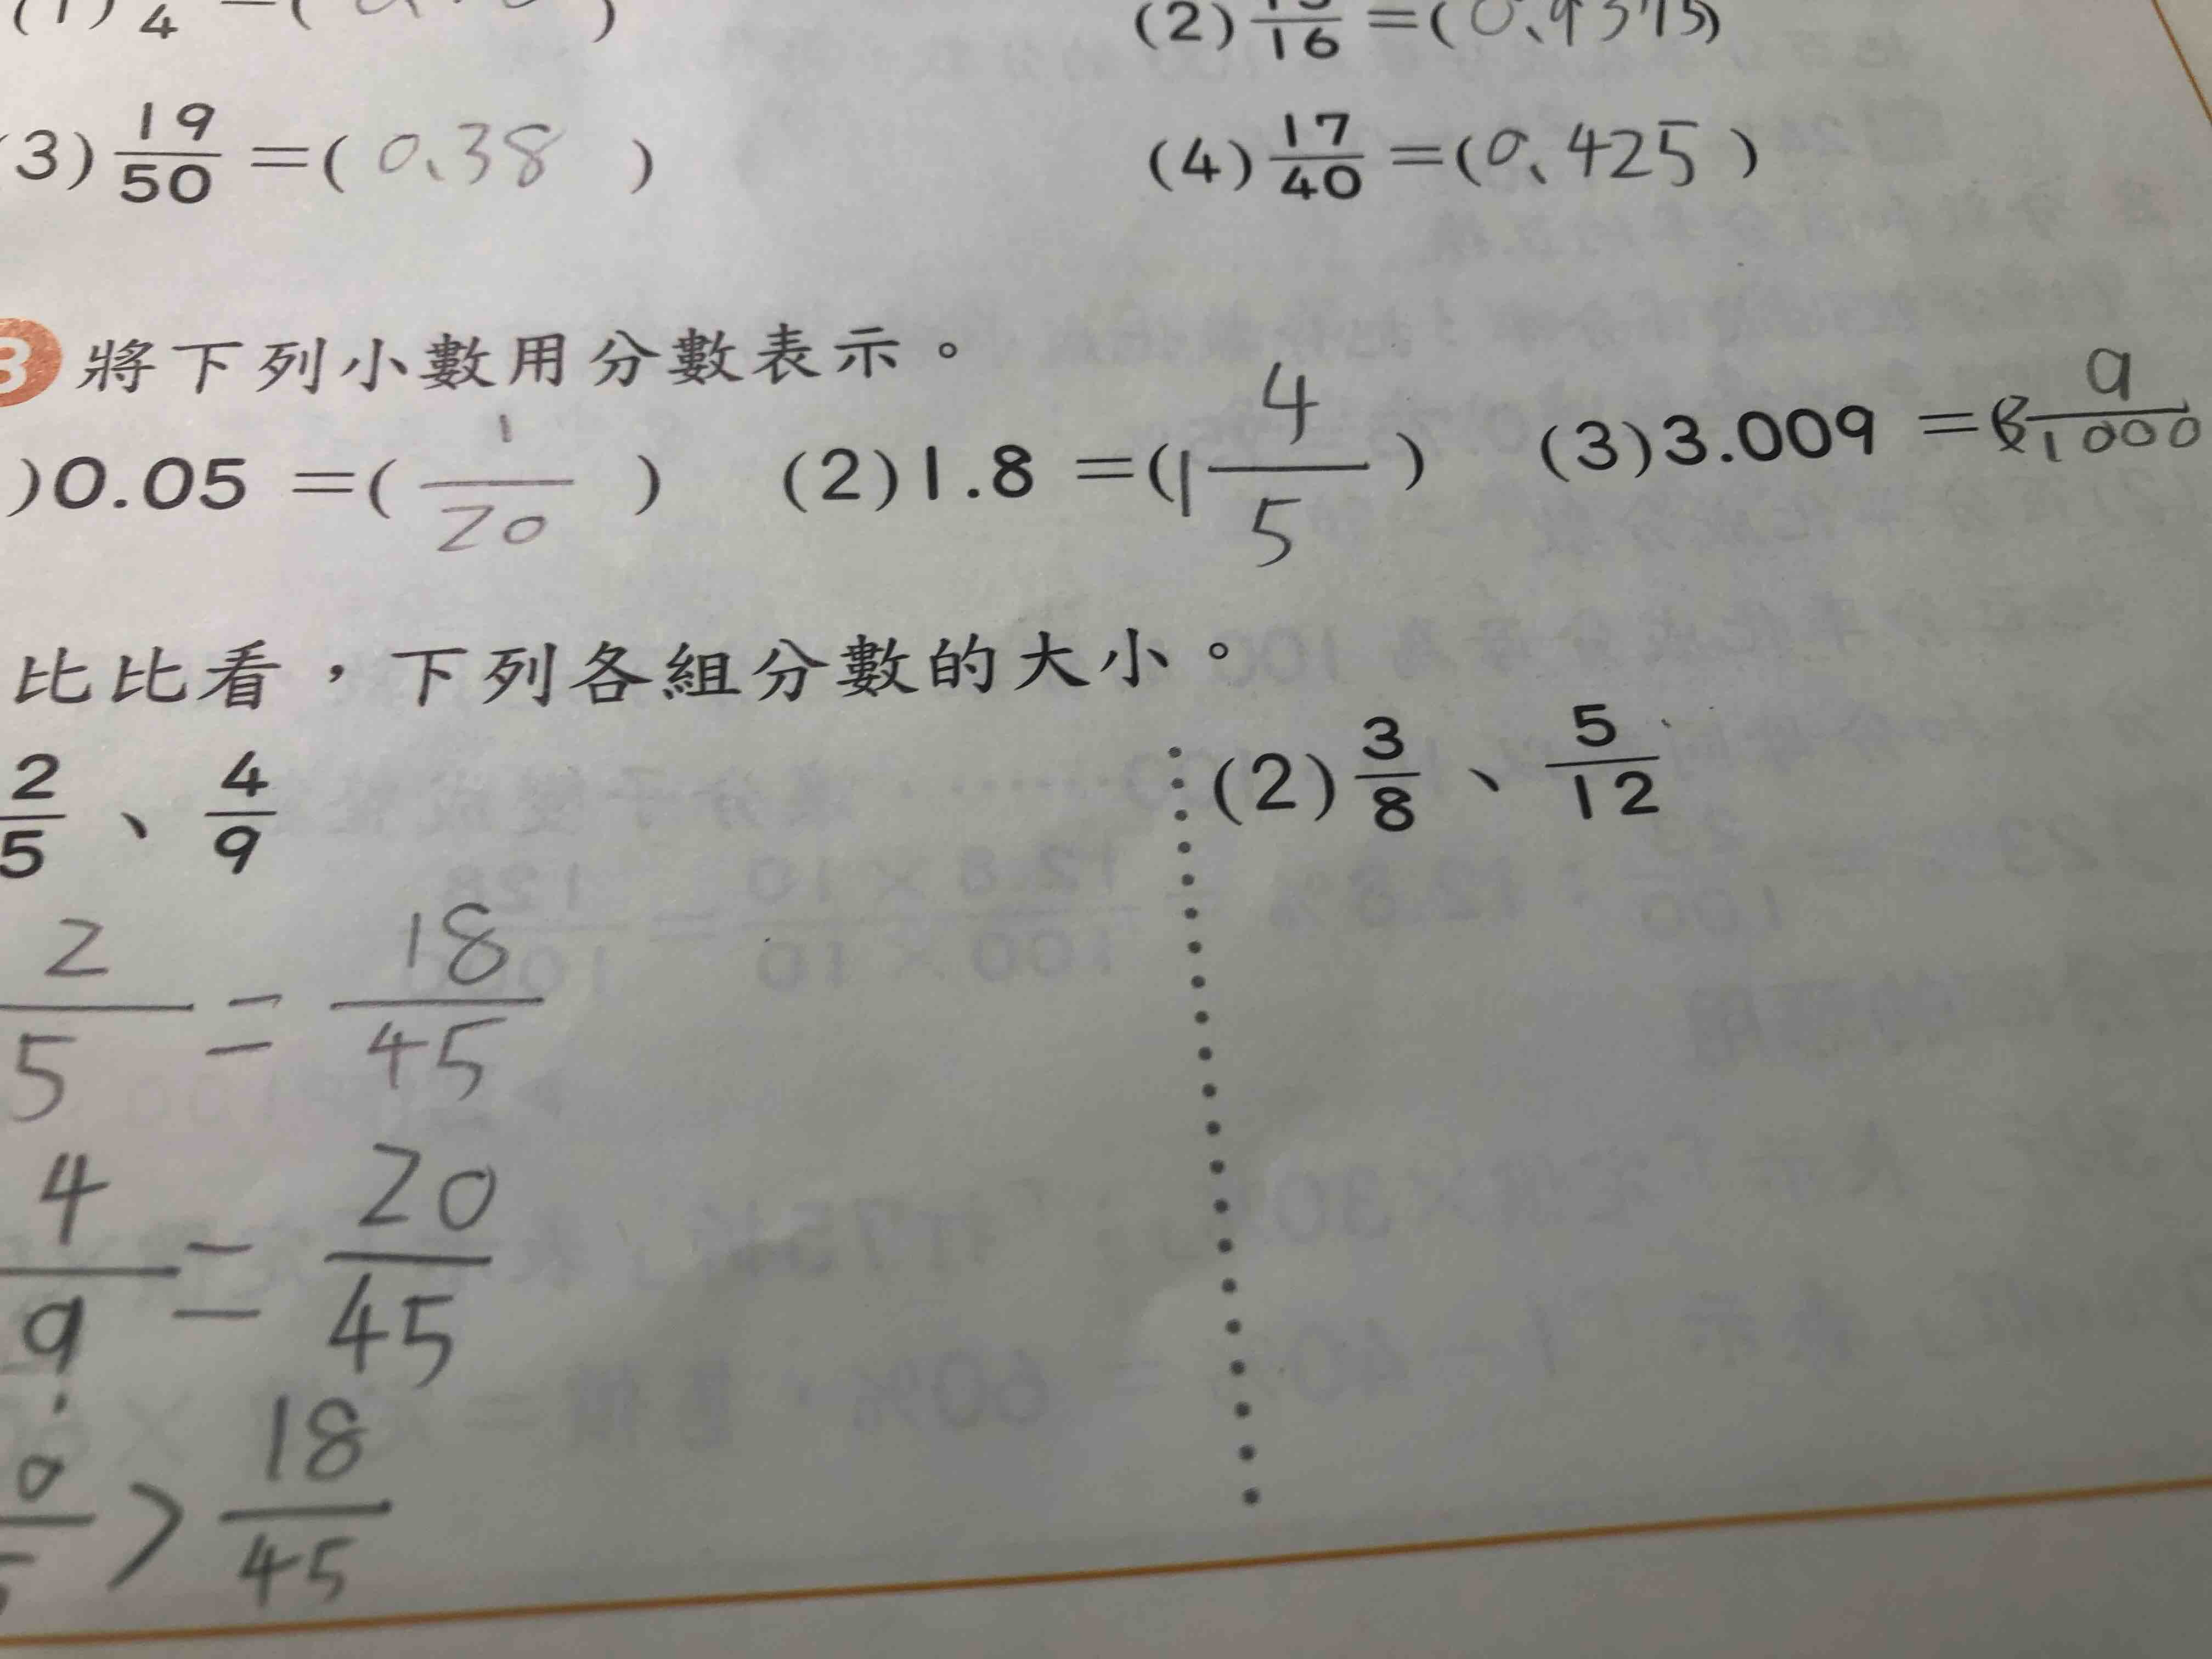 (2) /16 =(0.9375)
(3) 19/50 =( 0.38 )
(4) 17/40 =(0.425 )
3 將下列小數用分數表示。
)0.05 =( 1/20 )
(2)1.8 =(1 4/5 )
(3)3.009 =(3 9/1000
比比看,下列各組分數的大小。
2/5、4/9
(2) 3/8、5/12
2/5 = 18/45
4/9 = 20/45
> 18/45